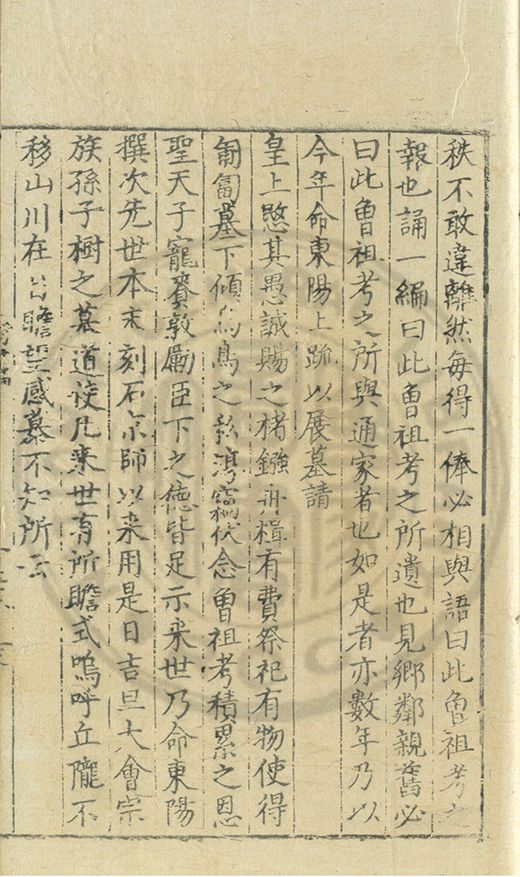 秩不敢違離然每得一俸必相與語曰此魯祖考之
報也誦一編曰此魯祖考之所遺也見鄉鄰親舊必
曰此魯祖考之所與通家者也如是者亦數年乃以
今年命東陽上疏以展墓請
皇上愍其愚誠賜之楮鏹舟楫有費祭祀有物使得
匍匐墓下傾烏鳥之私淺窩伏念魯祖考積累之恩
聖天子寵賚敦勵臣下之德皆足示来世乃命東陽
撰次先世本末刻石京師以来用是日吉旦大會宗
族孫子樹之墓道使凡来世有所瞻式嗚呼丘隴不
移山川在瞻望感慕不知所云